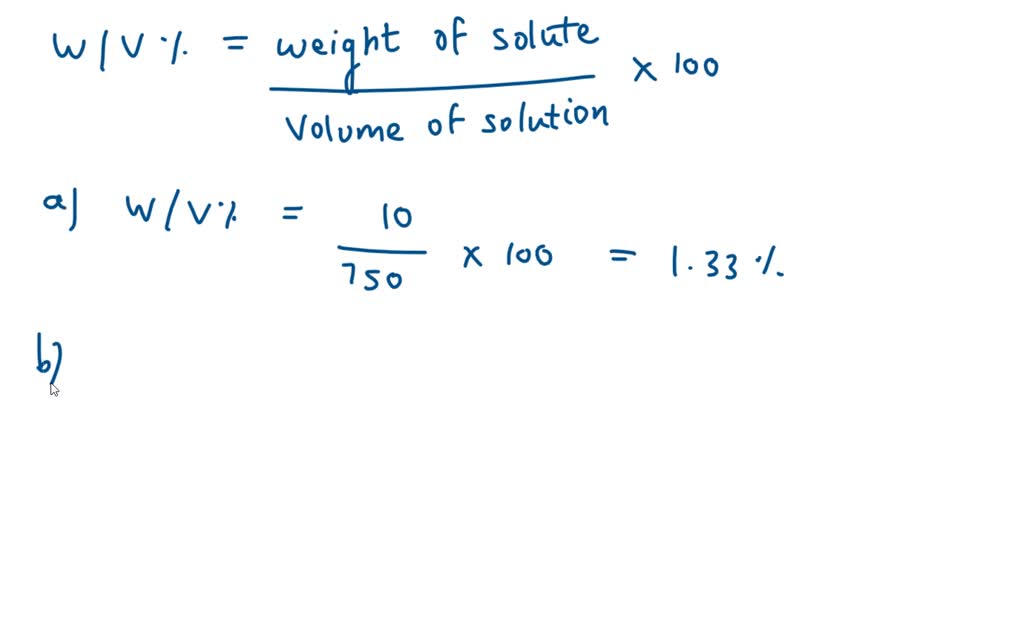 W/V % = weight of solute / Volume of solution × 100
a) W/V % = 10 / 750 × 100 = 1.33 %
b)